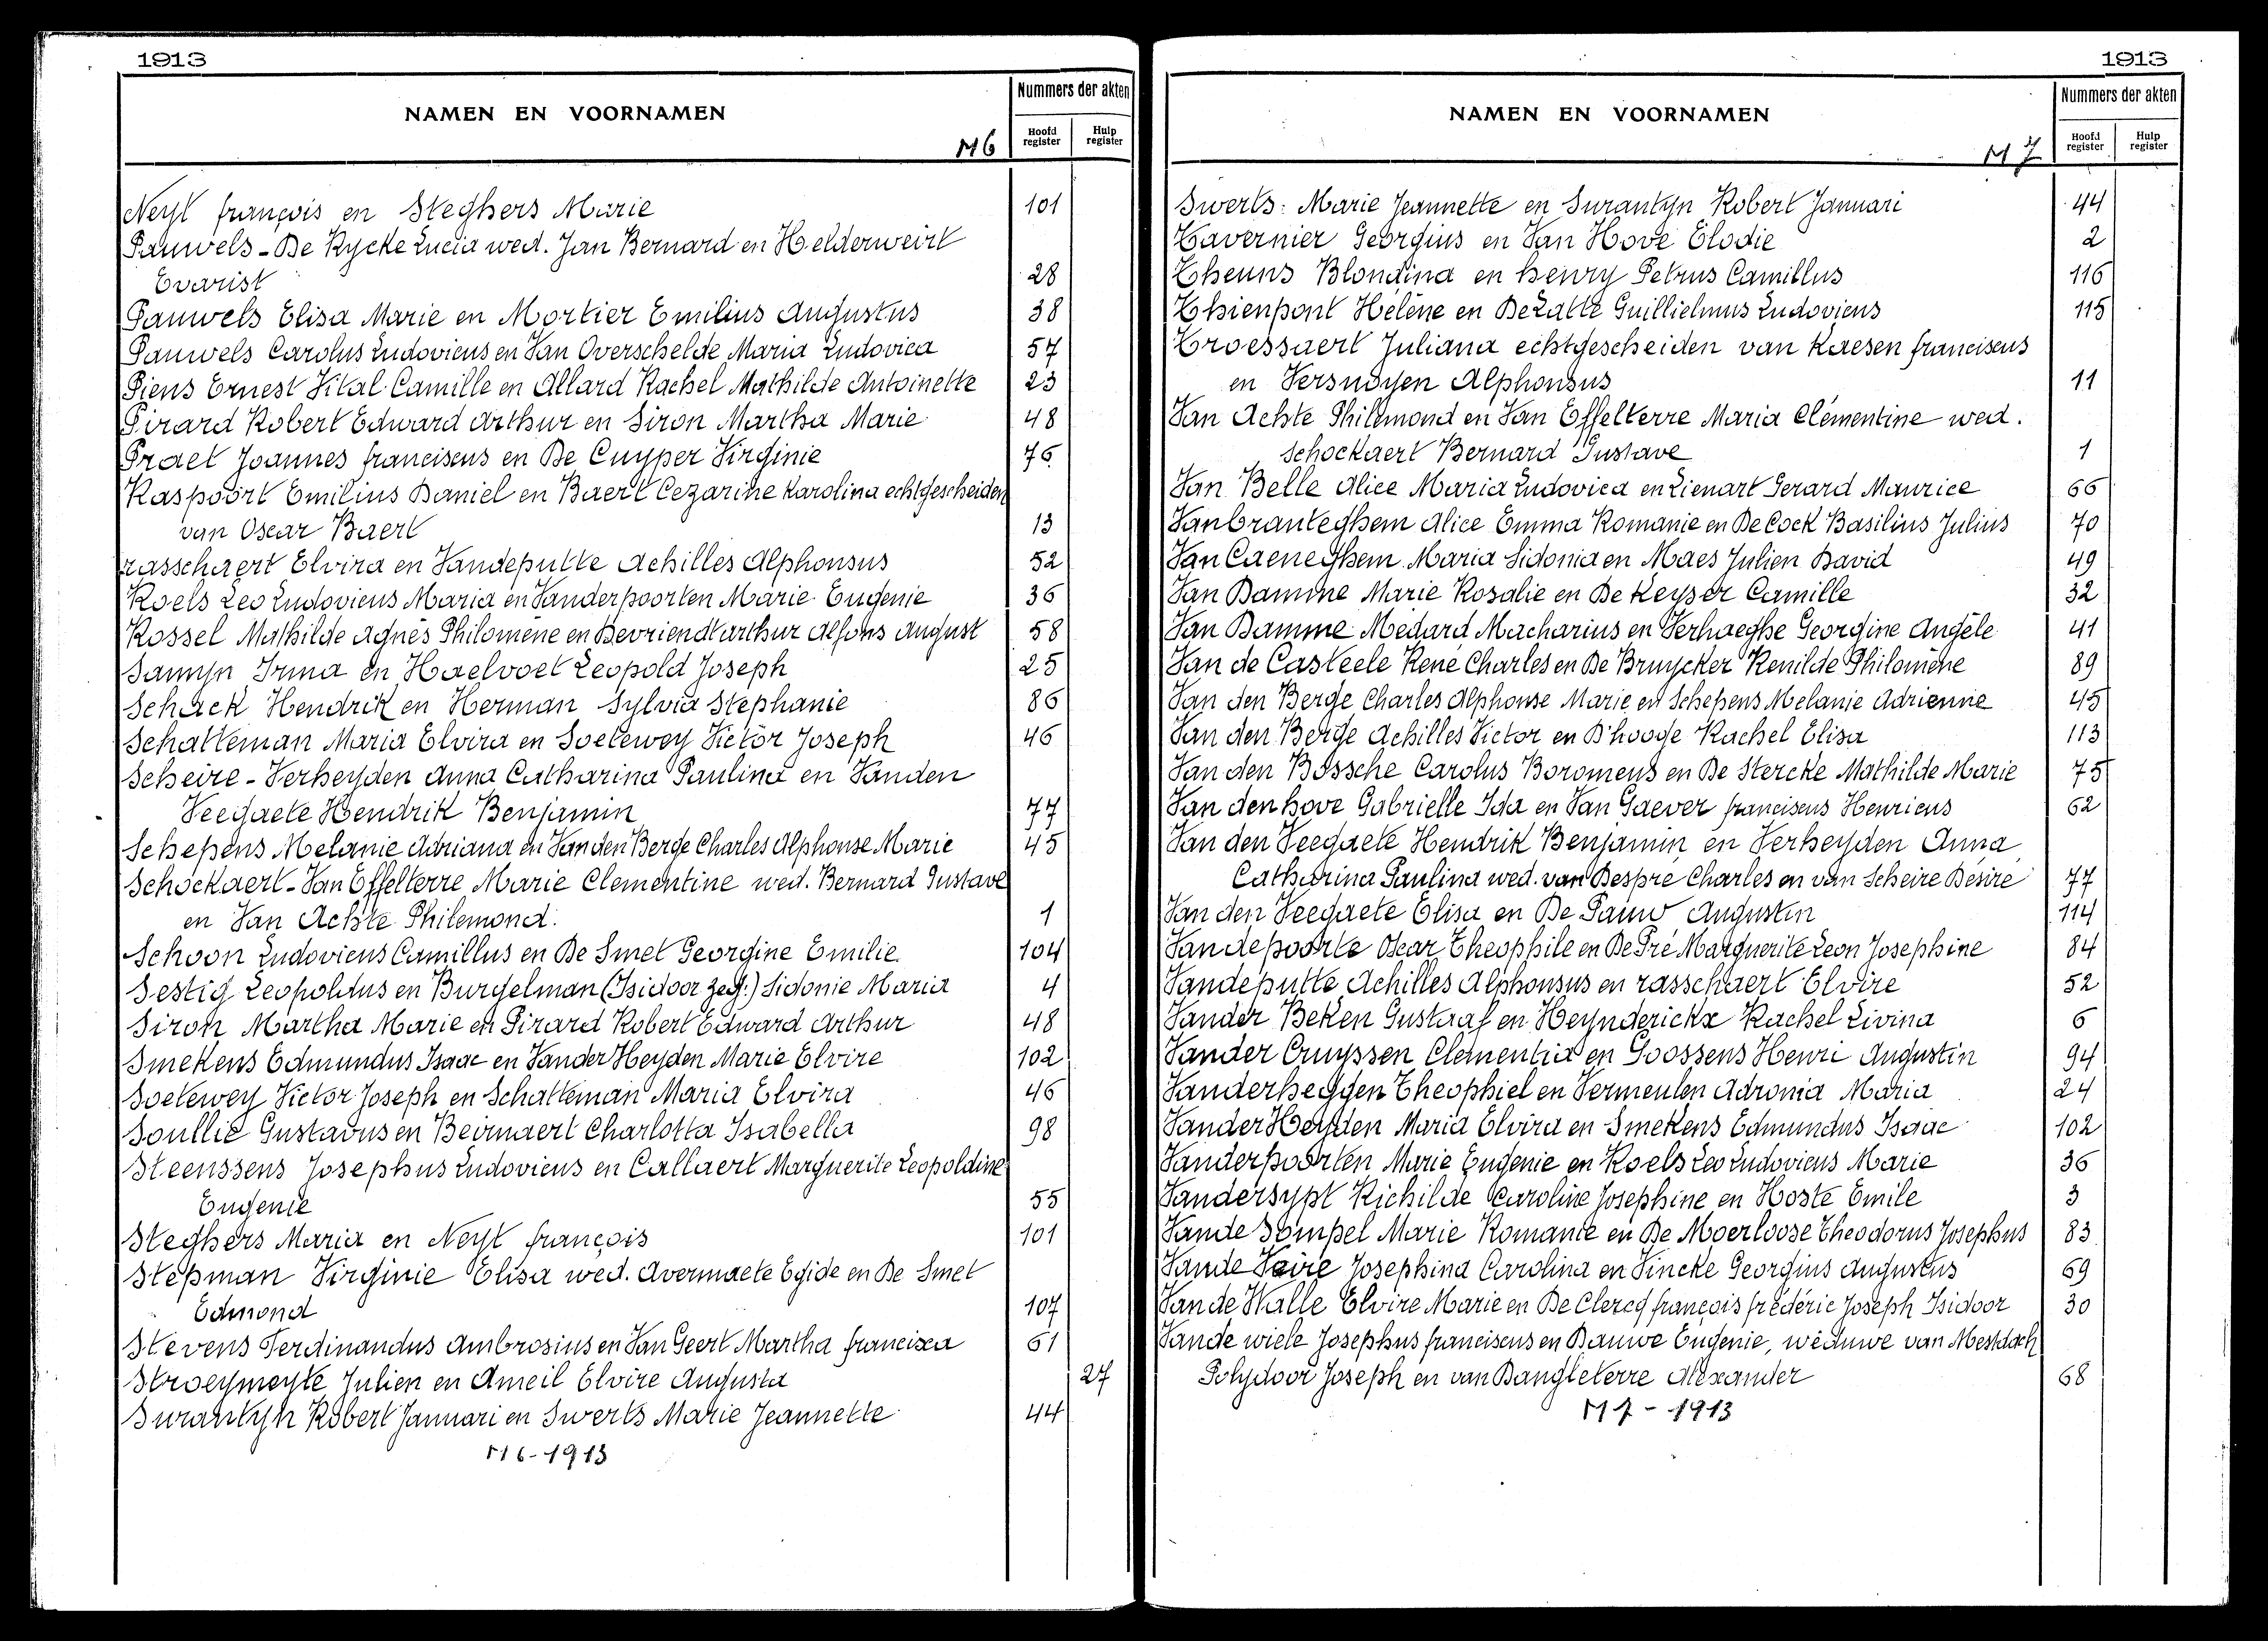 1913
NAMEN EN VOORNAMEN
Nummers der akten
Hoofd register
Hulp register
M 6
Neyt françois en Steghers Marie 101
Pauwels - De Rycke Lucia wed. Jan Bernard en Helderweirt
Evarist 28
Pauwels Elisa Marie en Mortier Emilius Augustus 38
Pauwels Carolus Ludovicus en Van Overschelde Maria Ludovica 57
Piens Ernest Vital Camille en Allard Rachel Mathilde Antoinette 23
Pirard Robert Edward Arthur en Siron Martha Marie 48
Praet Joannes franciscus en De Cuyper Virginie 76
Raspoort Emilius Daniel en Baert Cezarine Karolina echtgescheiden
van Oscar Baert 13
rasschaert Elvira en Vandeputte Achilles Alphonsus 52
Roels Leo Ludovicus Maria en Vanderpoorten Marie Eugenie 36
Rossel Mathilde Agnès Philomène en Devriendt arthur Alfons August 58
Samyn Irma en Haelvoet Leopold Joseph 25
Schack Hendrik en Herman Sylvia Stephanie 86
Schatteman Maria Elvira en Soetewey Victor Joseph 46
Scheire - Verheyden Anna Catharina Paulina en Vanden
Veegaete Hendrik Benjamin 77
Schepens Melanie Adriana en Van den Berge Charles Alphonse Marie 45
Schockaert - Van Effelterre Marie Clementine wed. Bernard Gustave
en Van Achte Philemond. 1
Schoon Ludovicus Camillus en De Smet Georgine Emilie 104
Sestig Leopoldus en Burgelman (Isidoor zeg.) Sidonie Maria 4
Siron Martha Marie en Pirard Robert Edward Arthur 48
Smekens Edmundus Isaac en Vander Heyden Marie Elvire 102
Soetewey Victor Joseph en Schatteman Maria Elvira 46
Soullié Gustavus en Beirnaert Charlotta Isabella 98
Steenssens Josephus Ludovicus en Callaert Marguerite Leopoldine
Eugenie 55
Steghers Maria en Neyt françois 101
Stepman Virginie Elisa wed. Avermaete Egide en De Smet
Edmond 107
Stevens Ferdinandus Ambrosius en Van Geert Martha francisca 61
Stroeymeyte Julien en Ameil Elvire Augusta 27
Surantyn Robert Januari en Swerts Marie Jeannette 44
M 6 - 1913
1913
NAMEN EN VOORNAMEN
Nummers der akten
Hoofd register
Hulp register
M 7
Swerts: Marie Jeannette en Surantyn Robert Januari 44
Tavernier Georgius en Van Hove Elodie 2
Theuns Blondina en henry Petrus Camillus 116
Thienpont Hélène en De Latte Guillielmus Ludovicus 115
Troessaert Juliana echtgescheiden van Kaesen franciscus
en Versnoyen Alphonsus 11
Van Achte Philemond en Van Effelterre Maria Clémentine wed.
Schockaert Bernard Gustave 1
Van Belle Alice Maria Ludovica en Lienart Gerard Maurice 66
Vanbranteghem Alice Emma Romanie en De Cock Basilius Julius 70
Van Caeneghem Maria Sidonia en Maes Julien David 49
Van Damme Marie Rosalie en De Keyser Camille 32
Van Damme Medard Macharius en Verhaeghe Georgine Angèle 41
Van de Casteele René Charles en De Bruycker Renilde Philomène 89
Van den Berge Charles Alphonse Marie en Schepens Melanie Adrienne 45
Van den Berge Achilles Victor en D'hooge Rachel Elisa 113
Van den Bossche Carolus Boromeus en De Stercke Mathilde Marie 75
Van den hove Gabrielle Ida en Van Gaever franciscus Henricus 62
Van den Veegaete Hendrik Benjamin en Verheyden Anna
Catharina Paulina wed. van Despré Charles en van Scheire Désiré 77
Van den Veegaete Elisa en De Pauw Augustin 114
Vandepoorte Oscar Theophile en De Pré Marguerite Leon Josephine 84
Vandeputte Achilles Alphonsus en rasschaert Elvire 52
Vander Beken Gustaaf en Heynderickx Rachel Livina 6
Vander Cruyssen Clementia en Goossens Henri Augustin 94
Vanderheggen Theophiel en Vermeulen Adronia Maria 24
Vander Heyden Maria Elvira en Smekens Edmundus Isaac 102
Vanderpoorten Marie Eugenie en Roels Leo Ludovicus Marie 36
Vandersypt Richilde Caroline Josephine en Hoste Emile 3
Vande Sompel Marie Romanie en De Moerloose Theodorus Josephus 83
Vande Veire Josephina Carolina en Vincke Georgius Augustus 69
Van de Walle Elvire Marie en De Clercq françois frédéric Joseph Isidoor 30
Vande wiele Josephus franciscus en Dauwe Eugenie, weduwe van Mestdach
Polydoor Joseph en van Dangleterre Alexander 68
M 7 - 1913